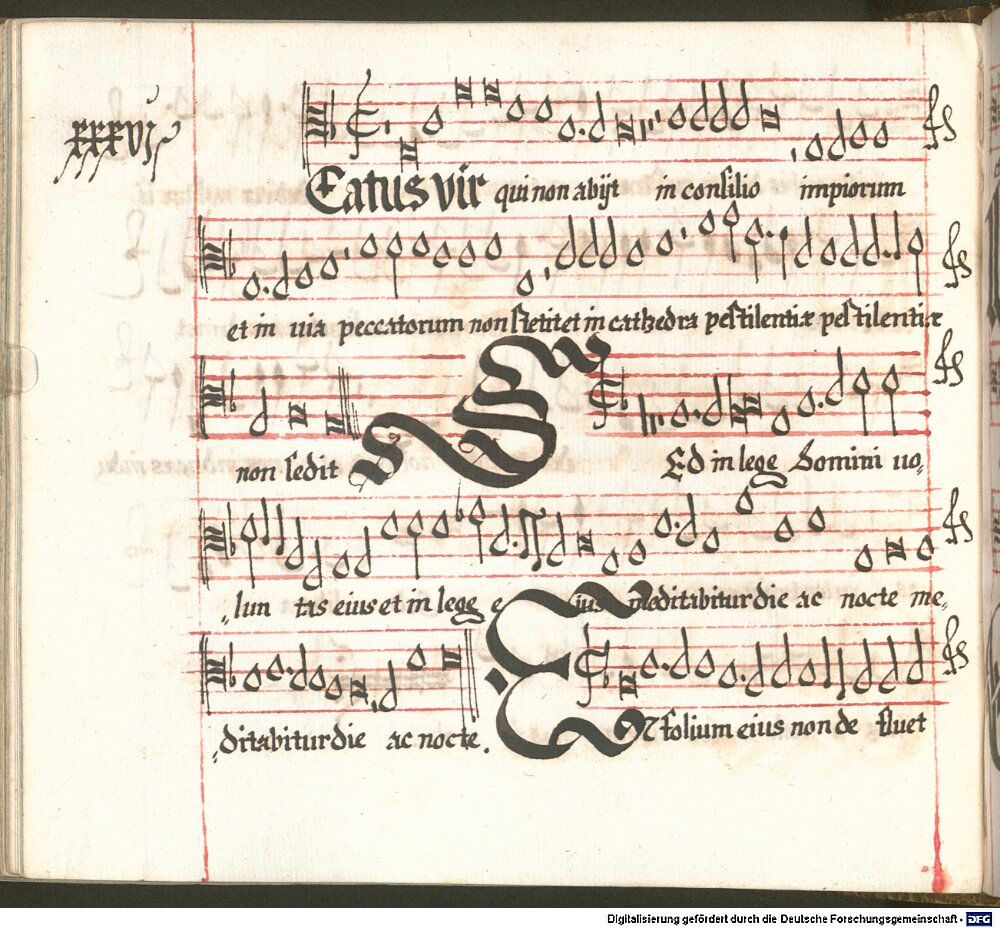 xxxvj
Eatus vir qui non abijt in consilio impiorum
et in via peccatorum non stetit et in cathedra pestilentiæ pestilentiæ
non sedit SEd in lege Domini uo„
„lun tas eius et in lege eius meditabitur die ac nocte me„
„ditabitur die ac nocte. ET folium eius non de fluet
Digitalisierung gefördert durch die Deutsche Forschungsgemeinschaft - DFG